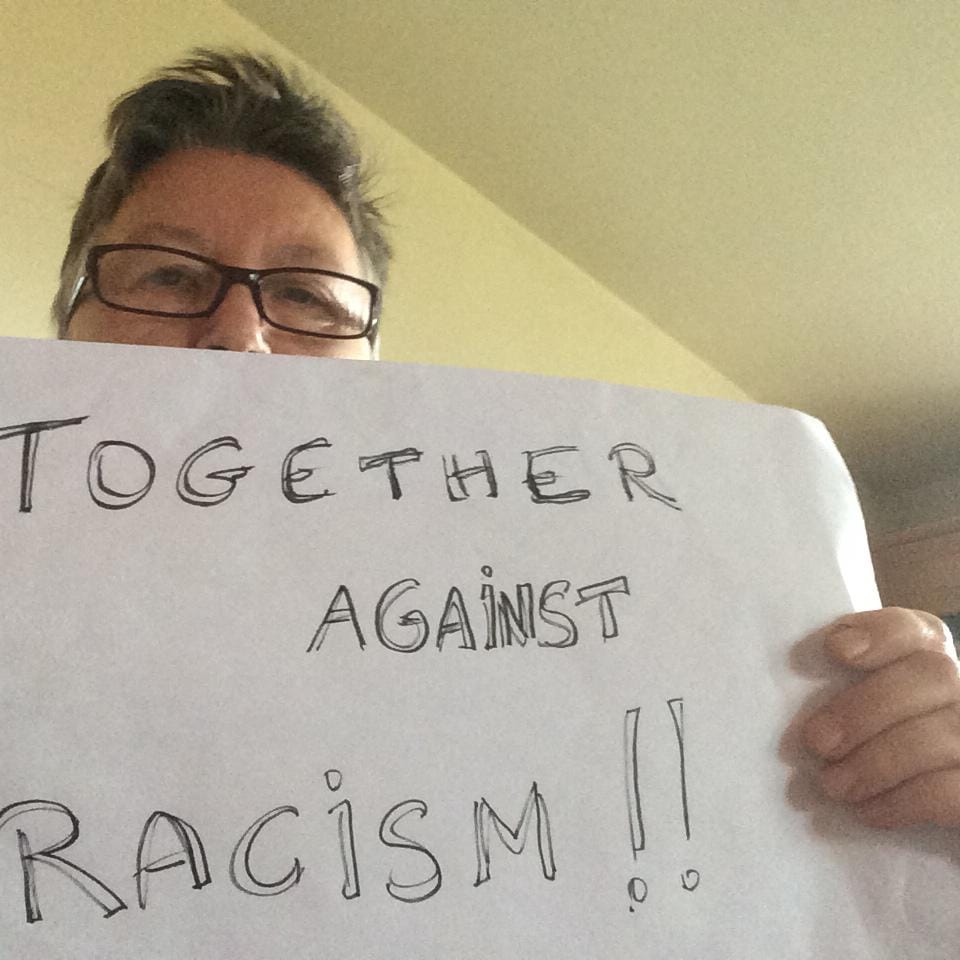 TOGETHER
AGAiNST
RACiSM !!